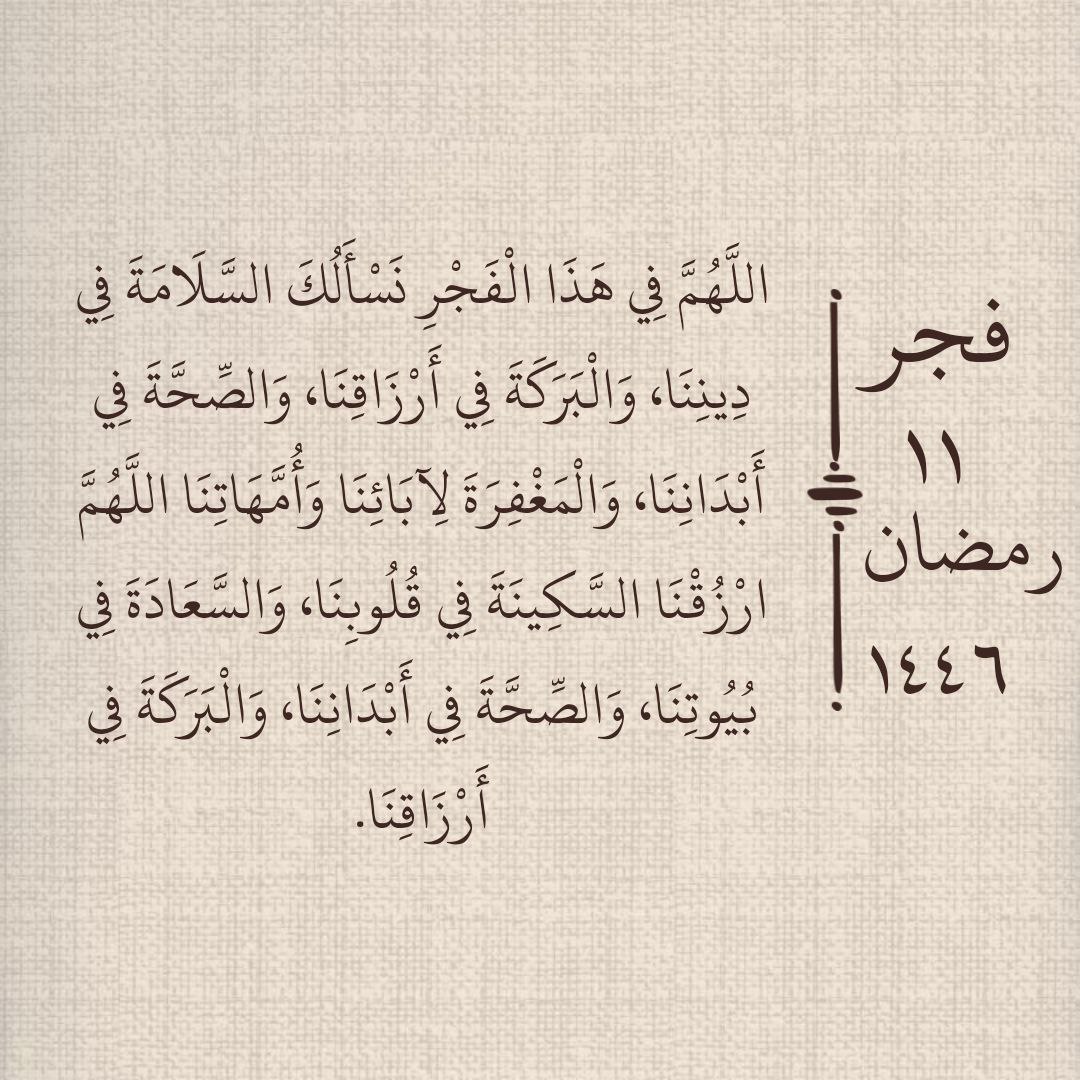 فجر
١١
رمضان
١٤٤٦
اللَّهُمَّ فِي هَذَا الْفَجْرِ نَسْأَلُكَ السَّلَامَةَ فِي
دِينِنَا، وَالْبَرَكَةَ فِي أَرْزَاقِنَا، وَالصِّحَّةَ فِي
أَبْدَانِنَا، وَالْمَغْفِرَةَ لِآبَائِنَا وَأُمَّهَاتِنَا اللَّهُمَّ
ارْزُقْنَا السَّكِينَةَ فِي قُلُوبِنَا، وَالسَّعَادَةَ فِي
بُيُوتِنَا، وَالصِّحَّةَ فِي أَبْدَانِنَا، وَالْبَرَكَةَ فِي
أَرْزَاقِنَا.